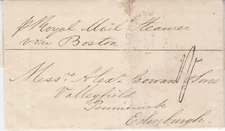 p Royal Mail Steamer
via Boston
Messrs Alexr Cowan & Sons
Valleyfield
Pennicuick
Edinburgh